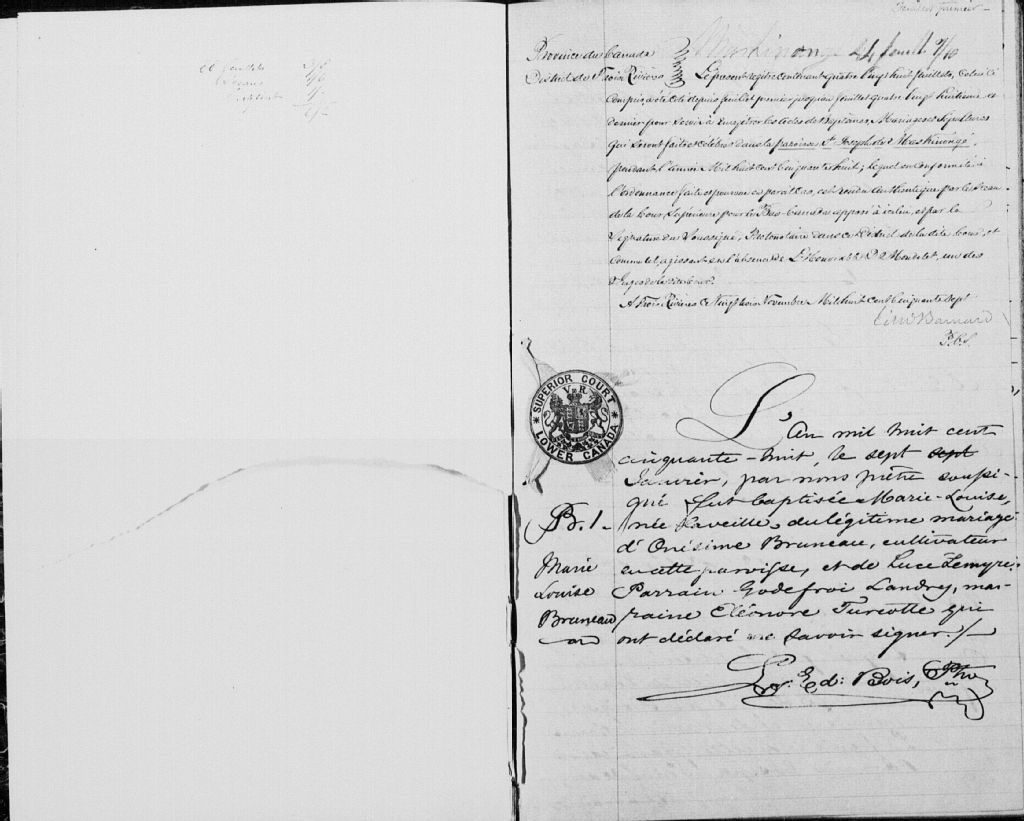 88 feuillets
Province du Canada
District de Trois Rivières
Le présent registre contenant quatre vingt huit feuillets, celui ci
compris, a été coté depuis feuillet premier jusqu'au feuillet quatre vingt huitième et
dernier pour servir à enrégistrer les actes de Baptêmes, Mariages et Sépultures
qui seront faits et célébrés dans la paroisse St. Joseph de Maskinongé
pendant l'année Mil huit cent Cinquante huit; lequel en conformité à
l'ordonnance faite et pourvue a été rendu authentique par le Sceau
de la Cour Supérieure pour le Bas-Canada apposé à icelui, et par la
Signature du Soussigné, Protonotaire dans ce District de la dite Cour, et
comme tel, agissant en l'absence de L'Honorable D. Mondelet, un des
Juges de la dite Cour.
A Trois Rivières ce Vingt trois Novembre Mil huit cent Cinquante Sept
Edw Barnard
P.C.S.
SUPERIOR COURT
V R
LOWER CANADA
L'An mil huit cent
cinquante-huit, le sept sept
Janvier, par nous prêtre soussi-
gné fut baptisée Marie-Louise,
B. 1 - née la veille, du légitime mariage
d'Onésime Bruneau, cultivateur
Marie en cette paroisse, et de Luce Lemyre.
Louise Parrain Godefroi Landry, mar-
Bruneau raine Eléonore Turcotte qui
ont déclaré ne savoir signer./
Ls. Ed: Bois, Ptre